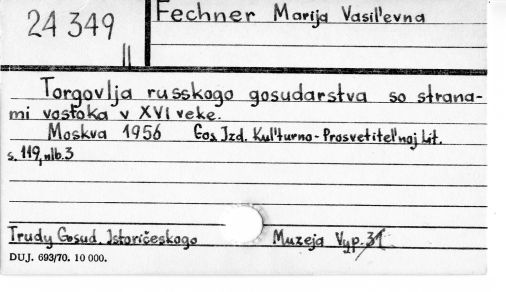 Fechner Marija Vasil'evna
24 349
II
Torgovlja russkogo gosudarstva so strana-
mi vostoka v XVI veke.
Moskva 1956 Gos. Izd. Kul'turno-Prosvetitel'noj Lit.
s. 119, nlb. 3
Trudy Gosud. Istoričeskogo Muzeja Vyp. 31
DUJ. 693/70. 10 000.